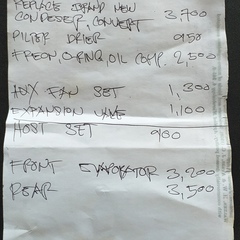 REPLACE BRAND NEW
CONDESER, CONVERT 3,700
FILTER DRIER 950
FREON, O-RING, OIL COMP. 2,500
AUX FAN SET 1,300
EXPANSION VALVE 1,100
HOST SET 900
FRONT EVAPORATOR 3,200
REAR 3,500